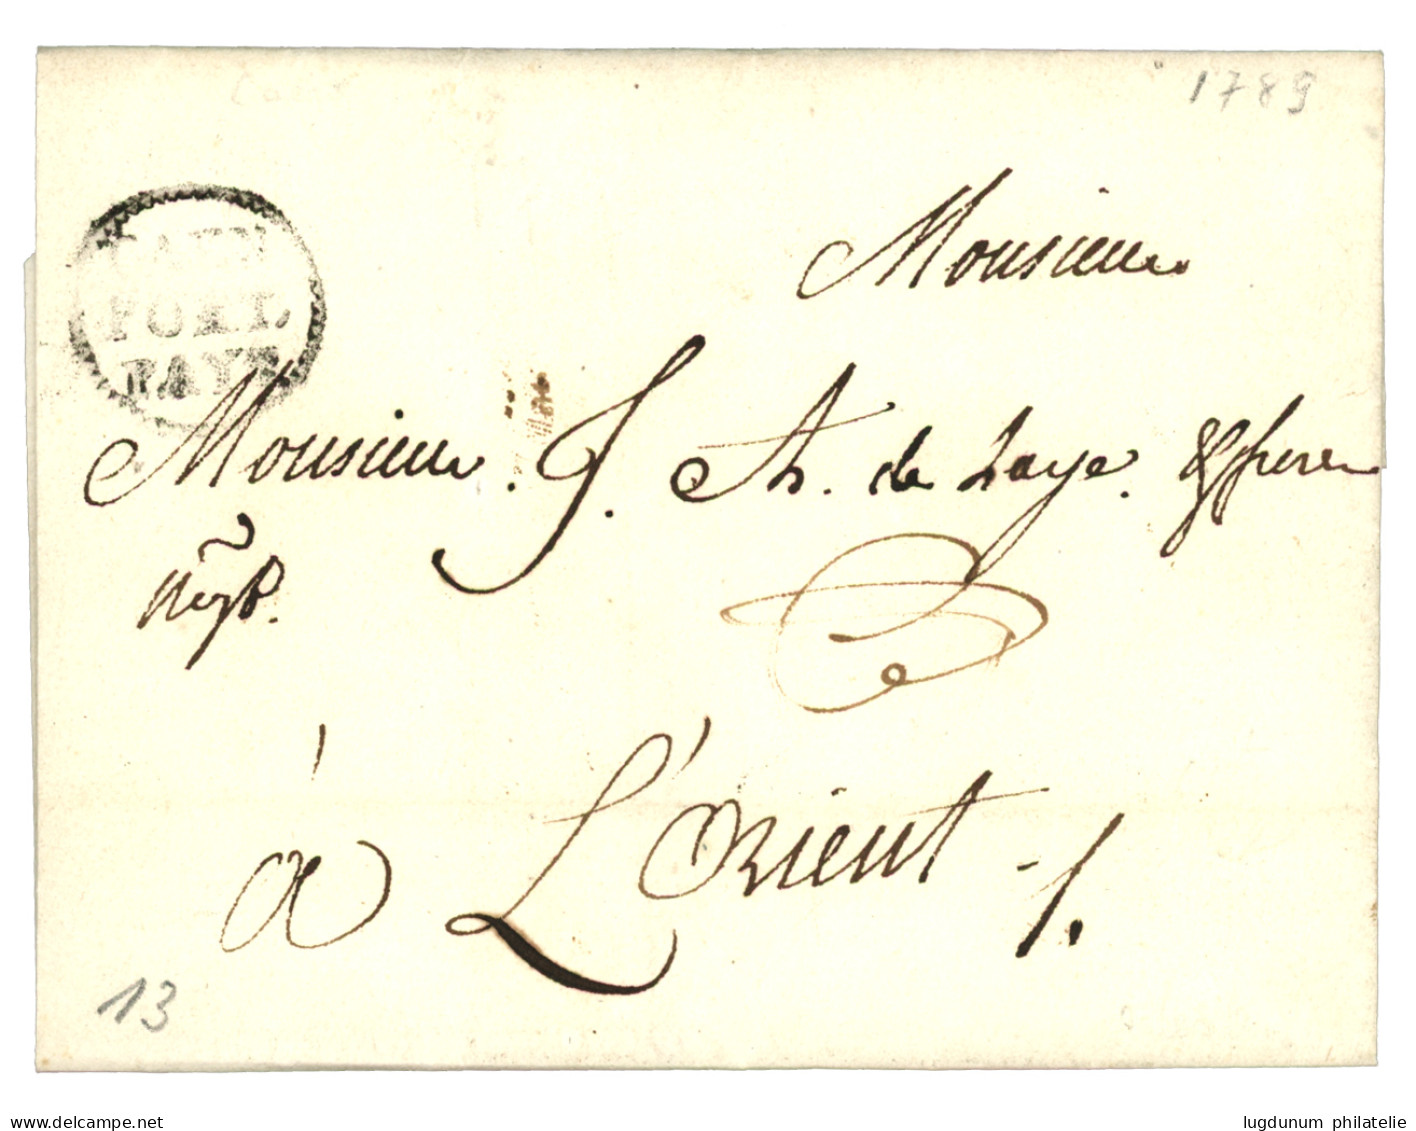 1789
Monsieur
CAEN
PORT
PAYE
Monsieur. J. A. de Laye. & frere
à L'Orient
13
www.delcampe.net
lugdunum philatelie